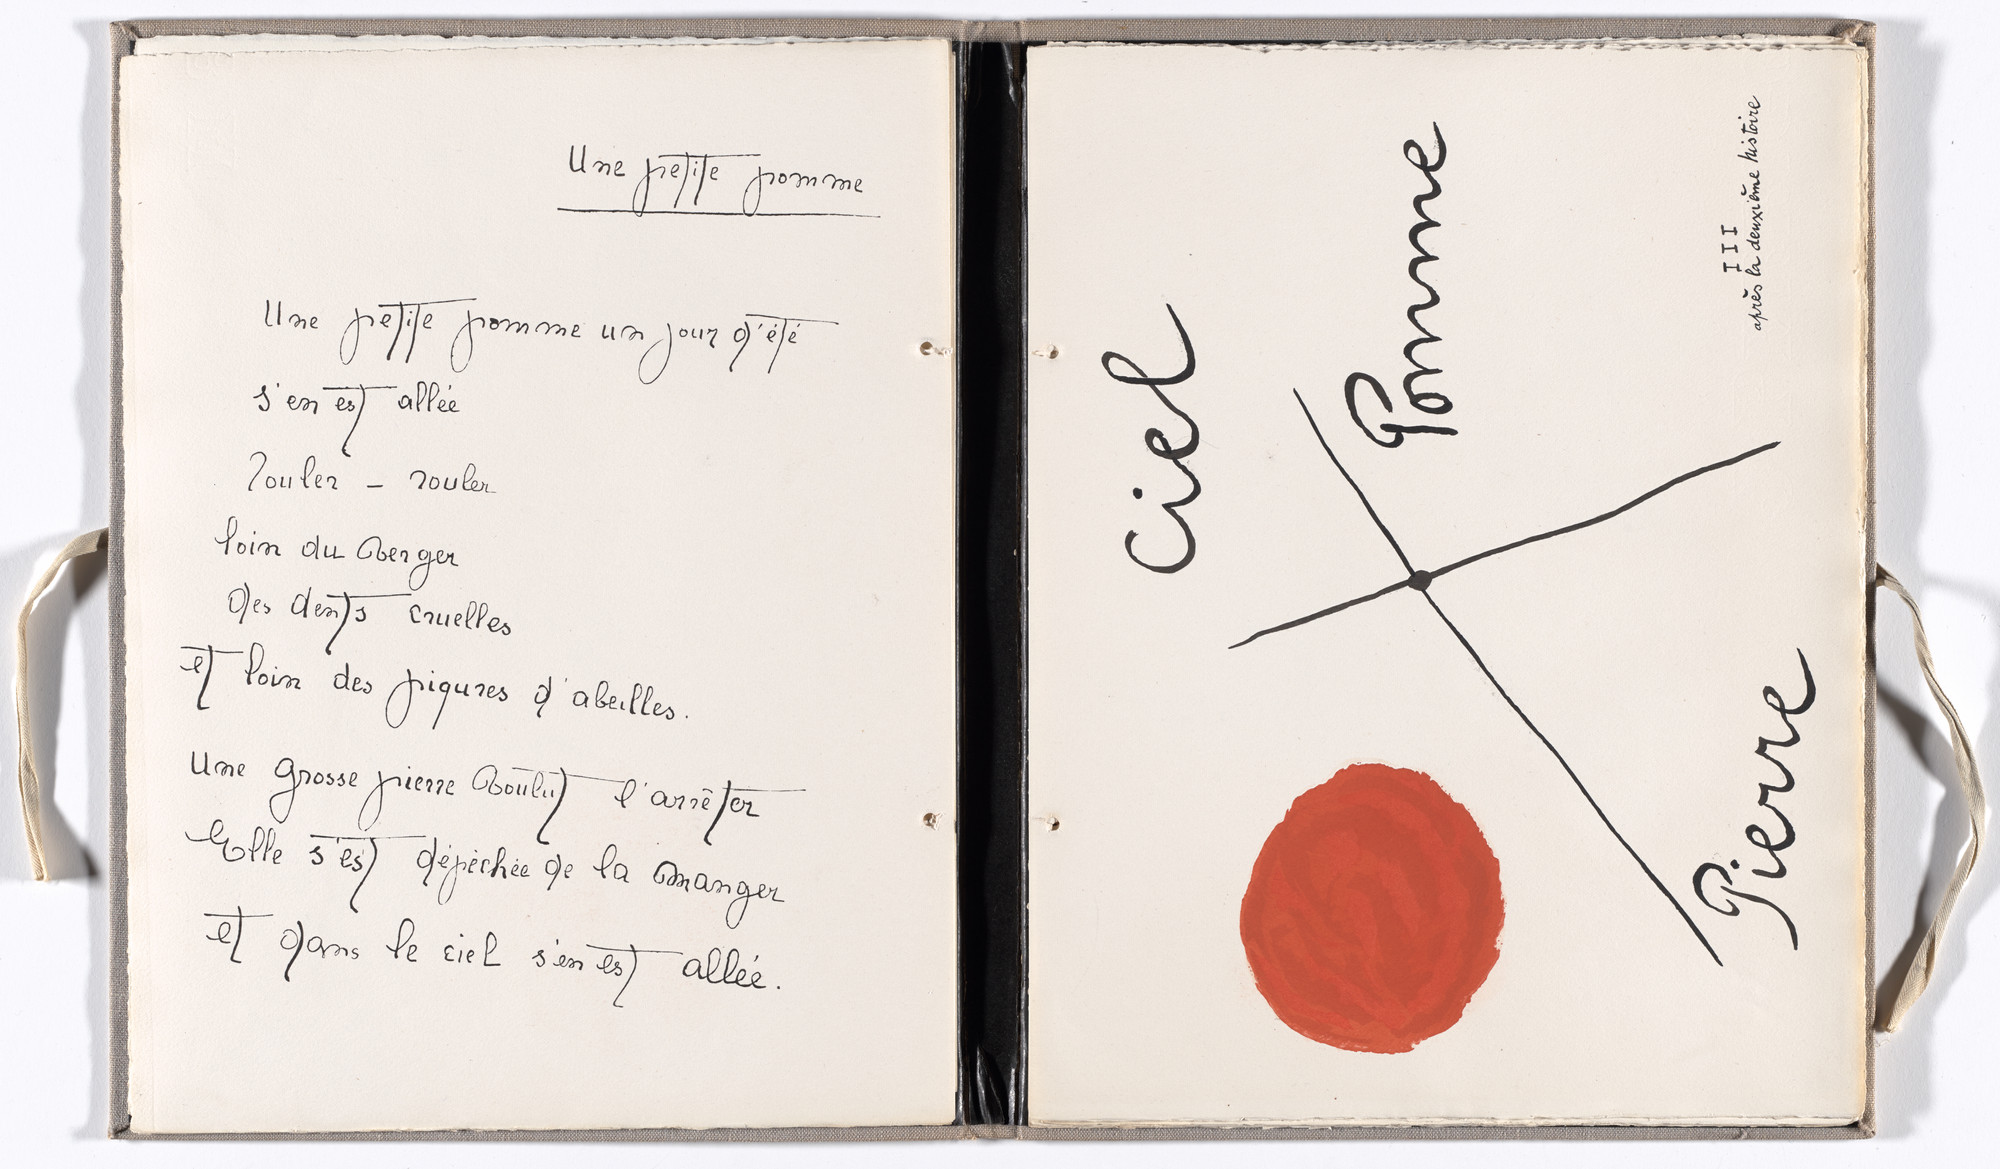 Une petite pomme
Une petite pomme un jour d'été
s'en est allée
rouler - rouler
loin du berger
des dents cruelles
et loin des piqures d'abeilles.
Une grosse pierre voulut l'arrêter
Elle s'est dépéchée de la manger
et dans le ciel s'en est allée.
Ciel
Pomme
Pierre
III
après la deuxième histoire